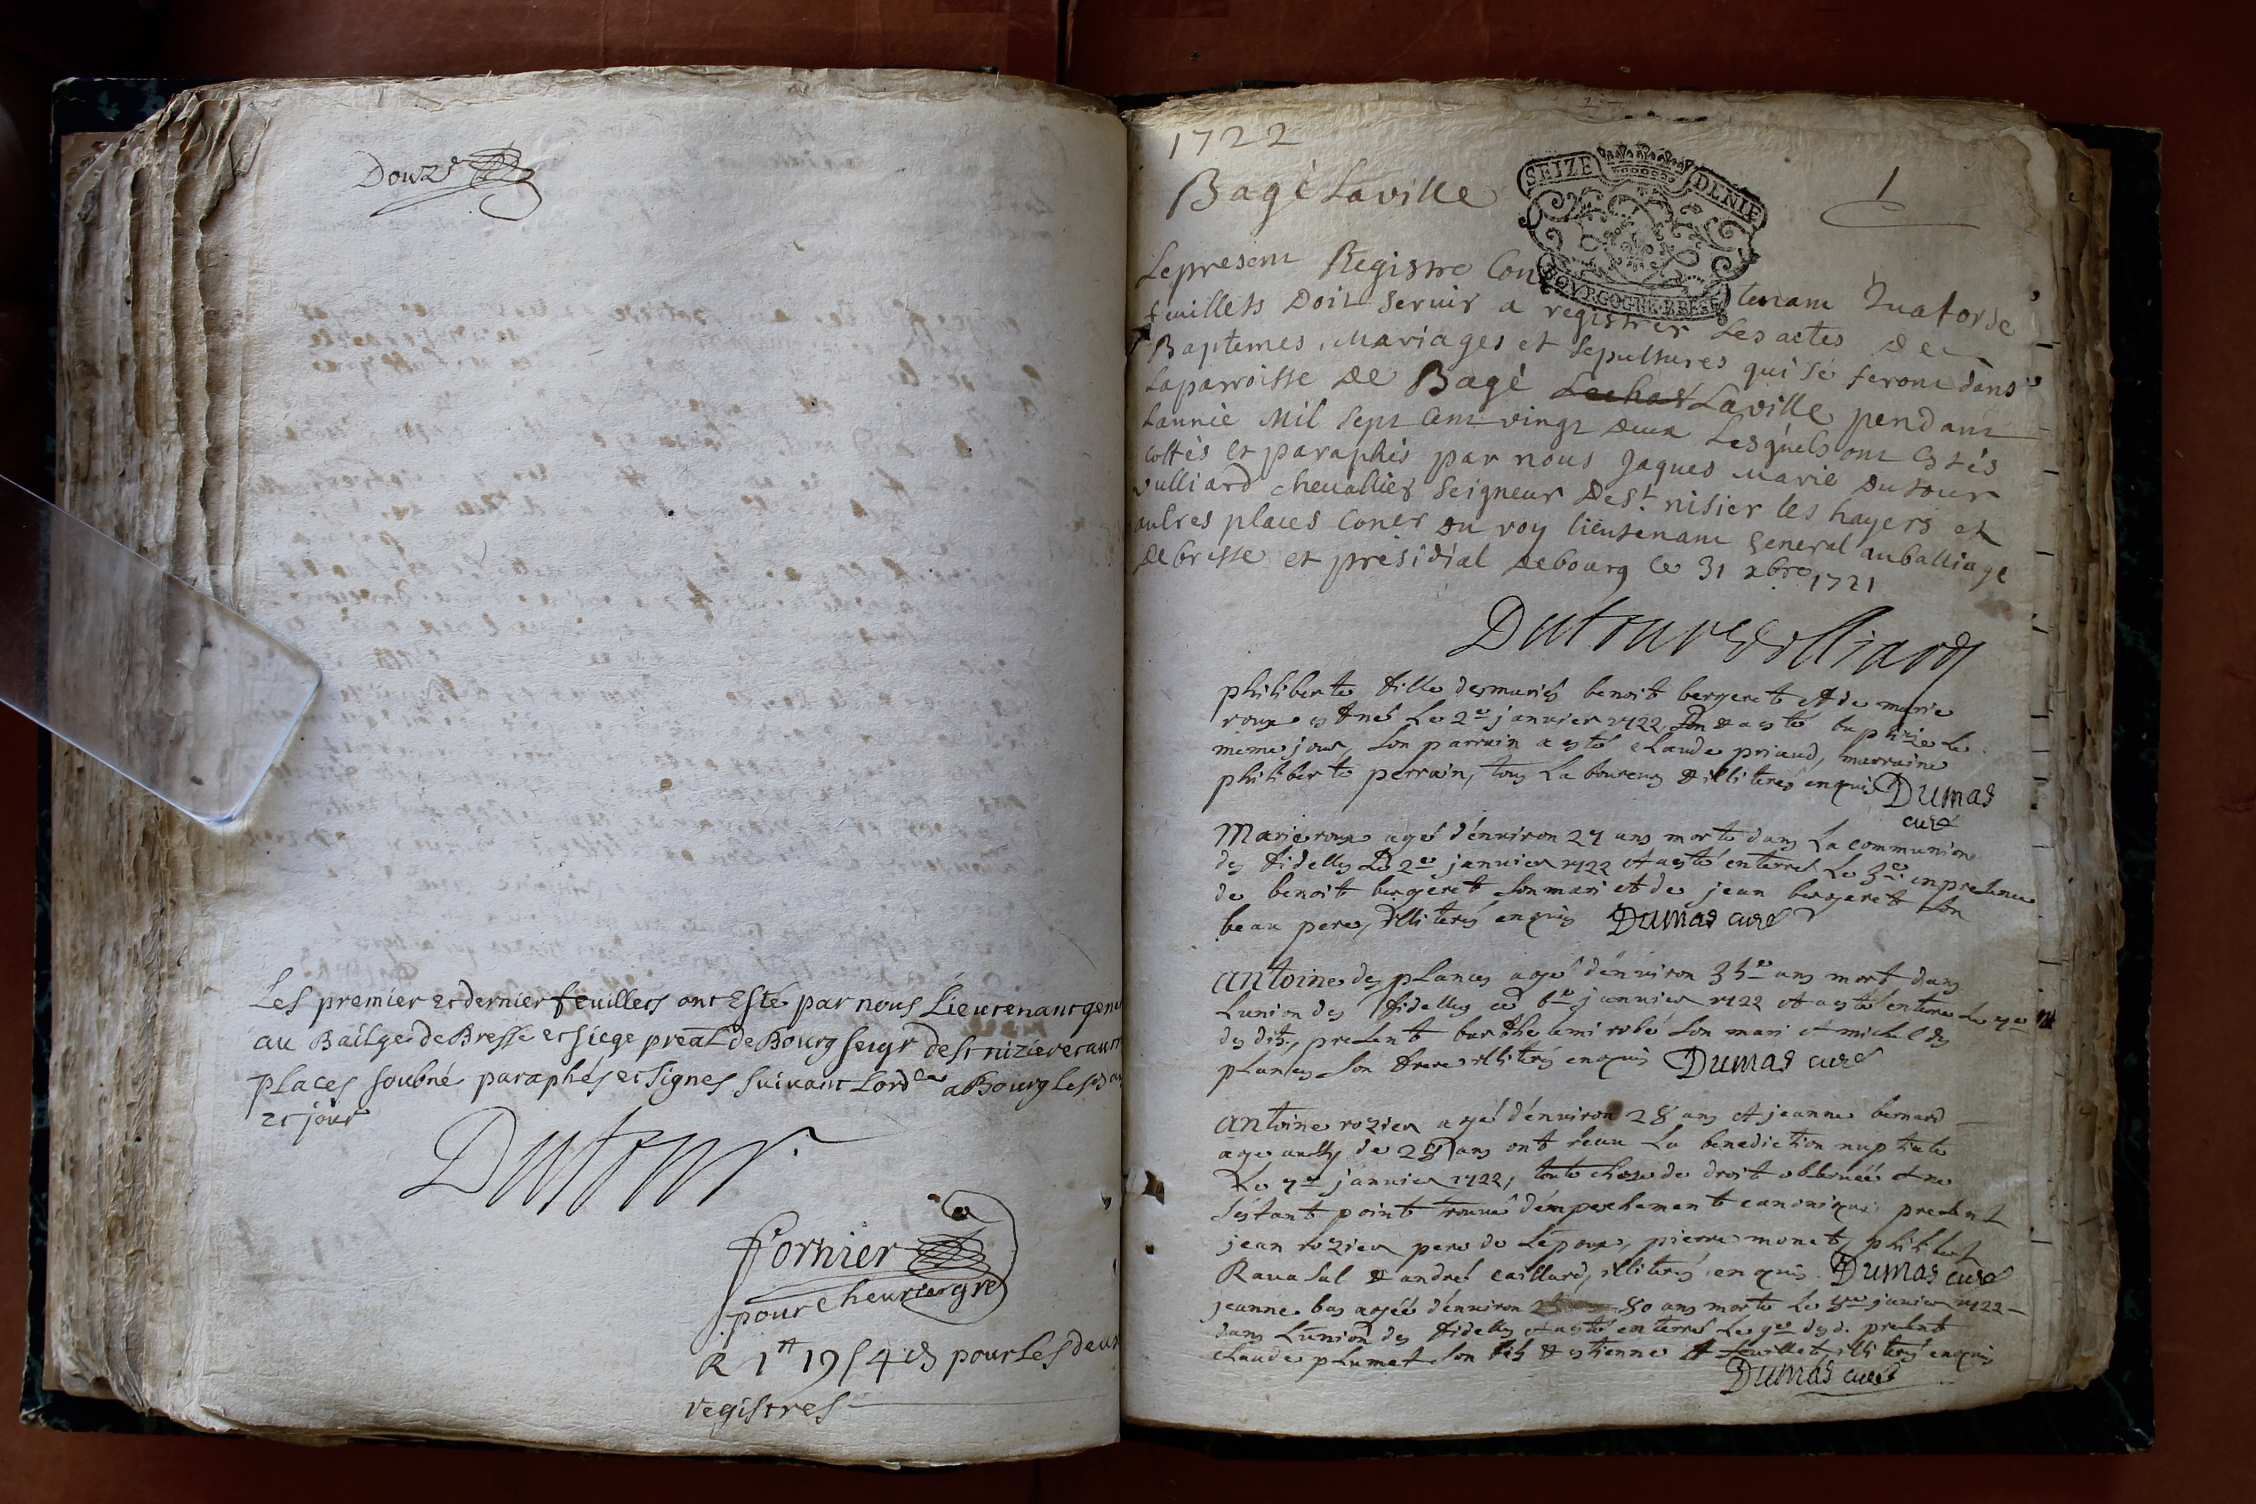 Douze
Les premier et dernier feuillets ont Esté par nous Lieutenant gen
au Bailge de Bresse et siege preal de Bourg seigr de st nizier et autr
places soubné paraphés et signes suivant Lordce a Bourg les
et jour
Dutour
fornier
pour cheurier gre
R 1tt 19 s 4 d pour Les deux
registres
1722
Bagé Laville
1
SEIZE DENIE
BOVRGOGNE BRESSE
Le present Registre Contenant Quatorse
feuillets Doit Servir a registrer Les actes De
Baptemes, Mariages et sepultures qui se feront dans
Laparroisse De Bagé Lechat Laville pendant
Lannée Mil sept Cent vingt Deux Lesquels ont Estés
cottés et paraphés par nous Jaques Marie Dutour
vulliard chevallier seigneur De St. nisier les hayers et
autres places Coner Du roy lieutenant general au balliage
De bresse et presidial De bourg ce 31 xbre 1721
Dutour vulliard
philiberte fille des mariés benoit bergeret et de marie
roux est née Le 2e janvier 1722 et a esté baptizée le
meme jour, son parrain a esté claude priaud, marraine
philiberte perrain, tous Laboureurs & illiterés enquis Dumas
curé
Marie roux agé d'environ 27 ans morte dans La communion
des fidelles Le 2e janvier 1722 et a esté enterré Le 3e en presence
de benoit bergeret son mari et de jean bergeret son
beau pere, illiterés enquis Dumas curé
antoine des plances agé d'environ 35 ans mort dans
L'union des fidelles ce 6e janvier 1722 et a esté enterré Le 7e
des dits, present barthelemi robé son mari et michel des
plances son frere illiterés enquis Dumas curé
antoine rozier agé d'environ 28 ans et jeanne bernard
agé aussy de 28 ans ont receu La benediction nuptiale
Le 7e janvier 1722, toute chose de droit observée et ne
s'estant point trouvé d'empeschement canonique present
jean rozier pere de L'epoux, pierre monet, philibert
Ravasal & andré caillard, illiterés enquis. Dumas curé
jeanne bas agée d'environ 50 ans morte Le 8e janvier 1722
dans L'union des fidelles et a esté enterré Le 9e dud. present
claude plumet son fils & estienne feuillet, illiterés enquis
Dumas curé